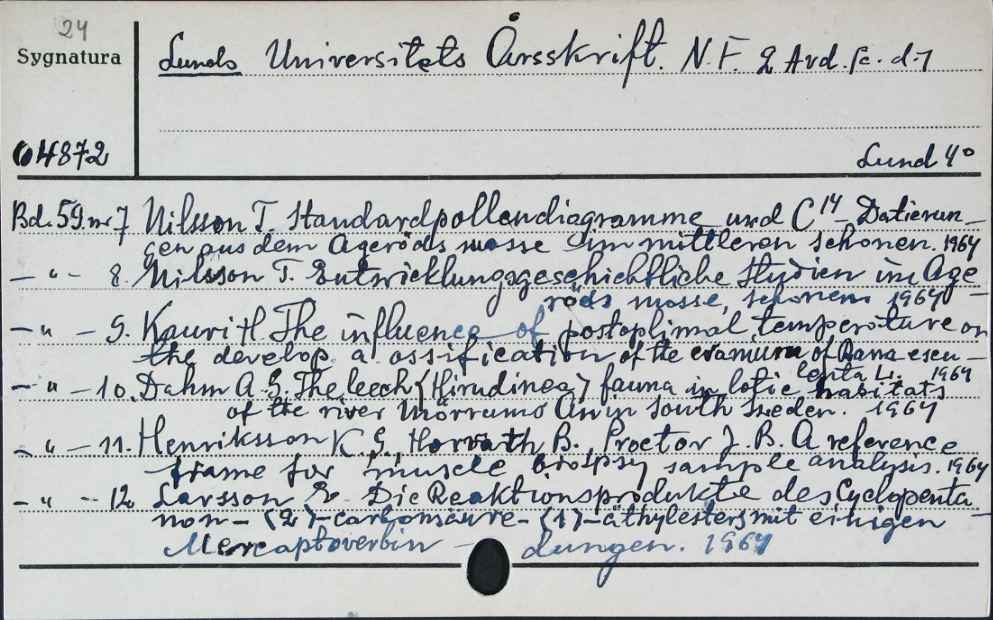 24
Sygnatura
Lunds Universitets Årsskrift. N.F. 2 Avd. fc. d.7
04872
Lund 4°
Bd. 59. nr 7 Nilsson T. Standardpollendiagramme und C14-Datierun-
gen aus dem Ageröds mosse im mittleren Schonen. 1964
– " – 8. Nilsson T. Entwicklungsgeschichtliche Studien im Age
röds mosse, Schonen 1964 –
– " – 9. Kauri H The influence of postoptimal temperature on
the develop. a ossification of the cranium of Rana escu –
lenta L. 1964
– " – 10. Dahm A.G. The leech (Hirudinea) fauna in lotic habitats
of the river Mörrums Ån in South Sweden. 1964
– " – 11. Henriksson K.G., Horvath B., Proctor J.B. A reference
frame for muscle biopsy sample analysis. 1964
– " – 12. Larsson E. Die Reaktionsprodukte des Cyclopenta
non-(2)-carbonsäure-(1)-äthylesters mit einigen –
Mercaptoverbin – dungen. 1964